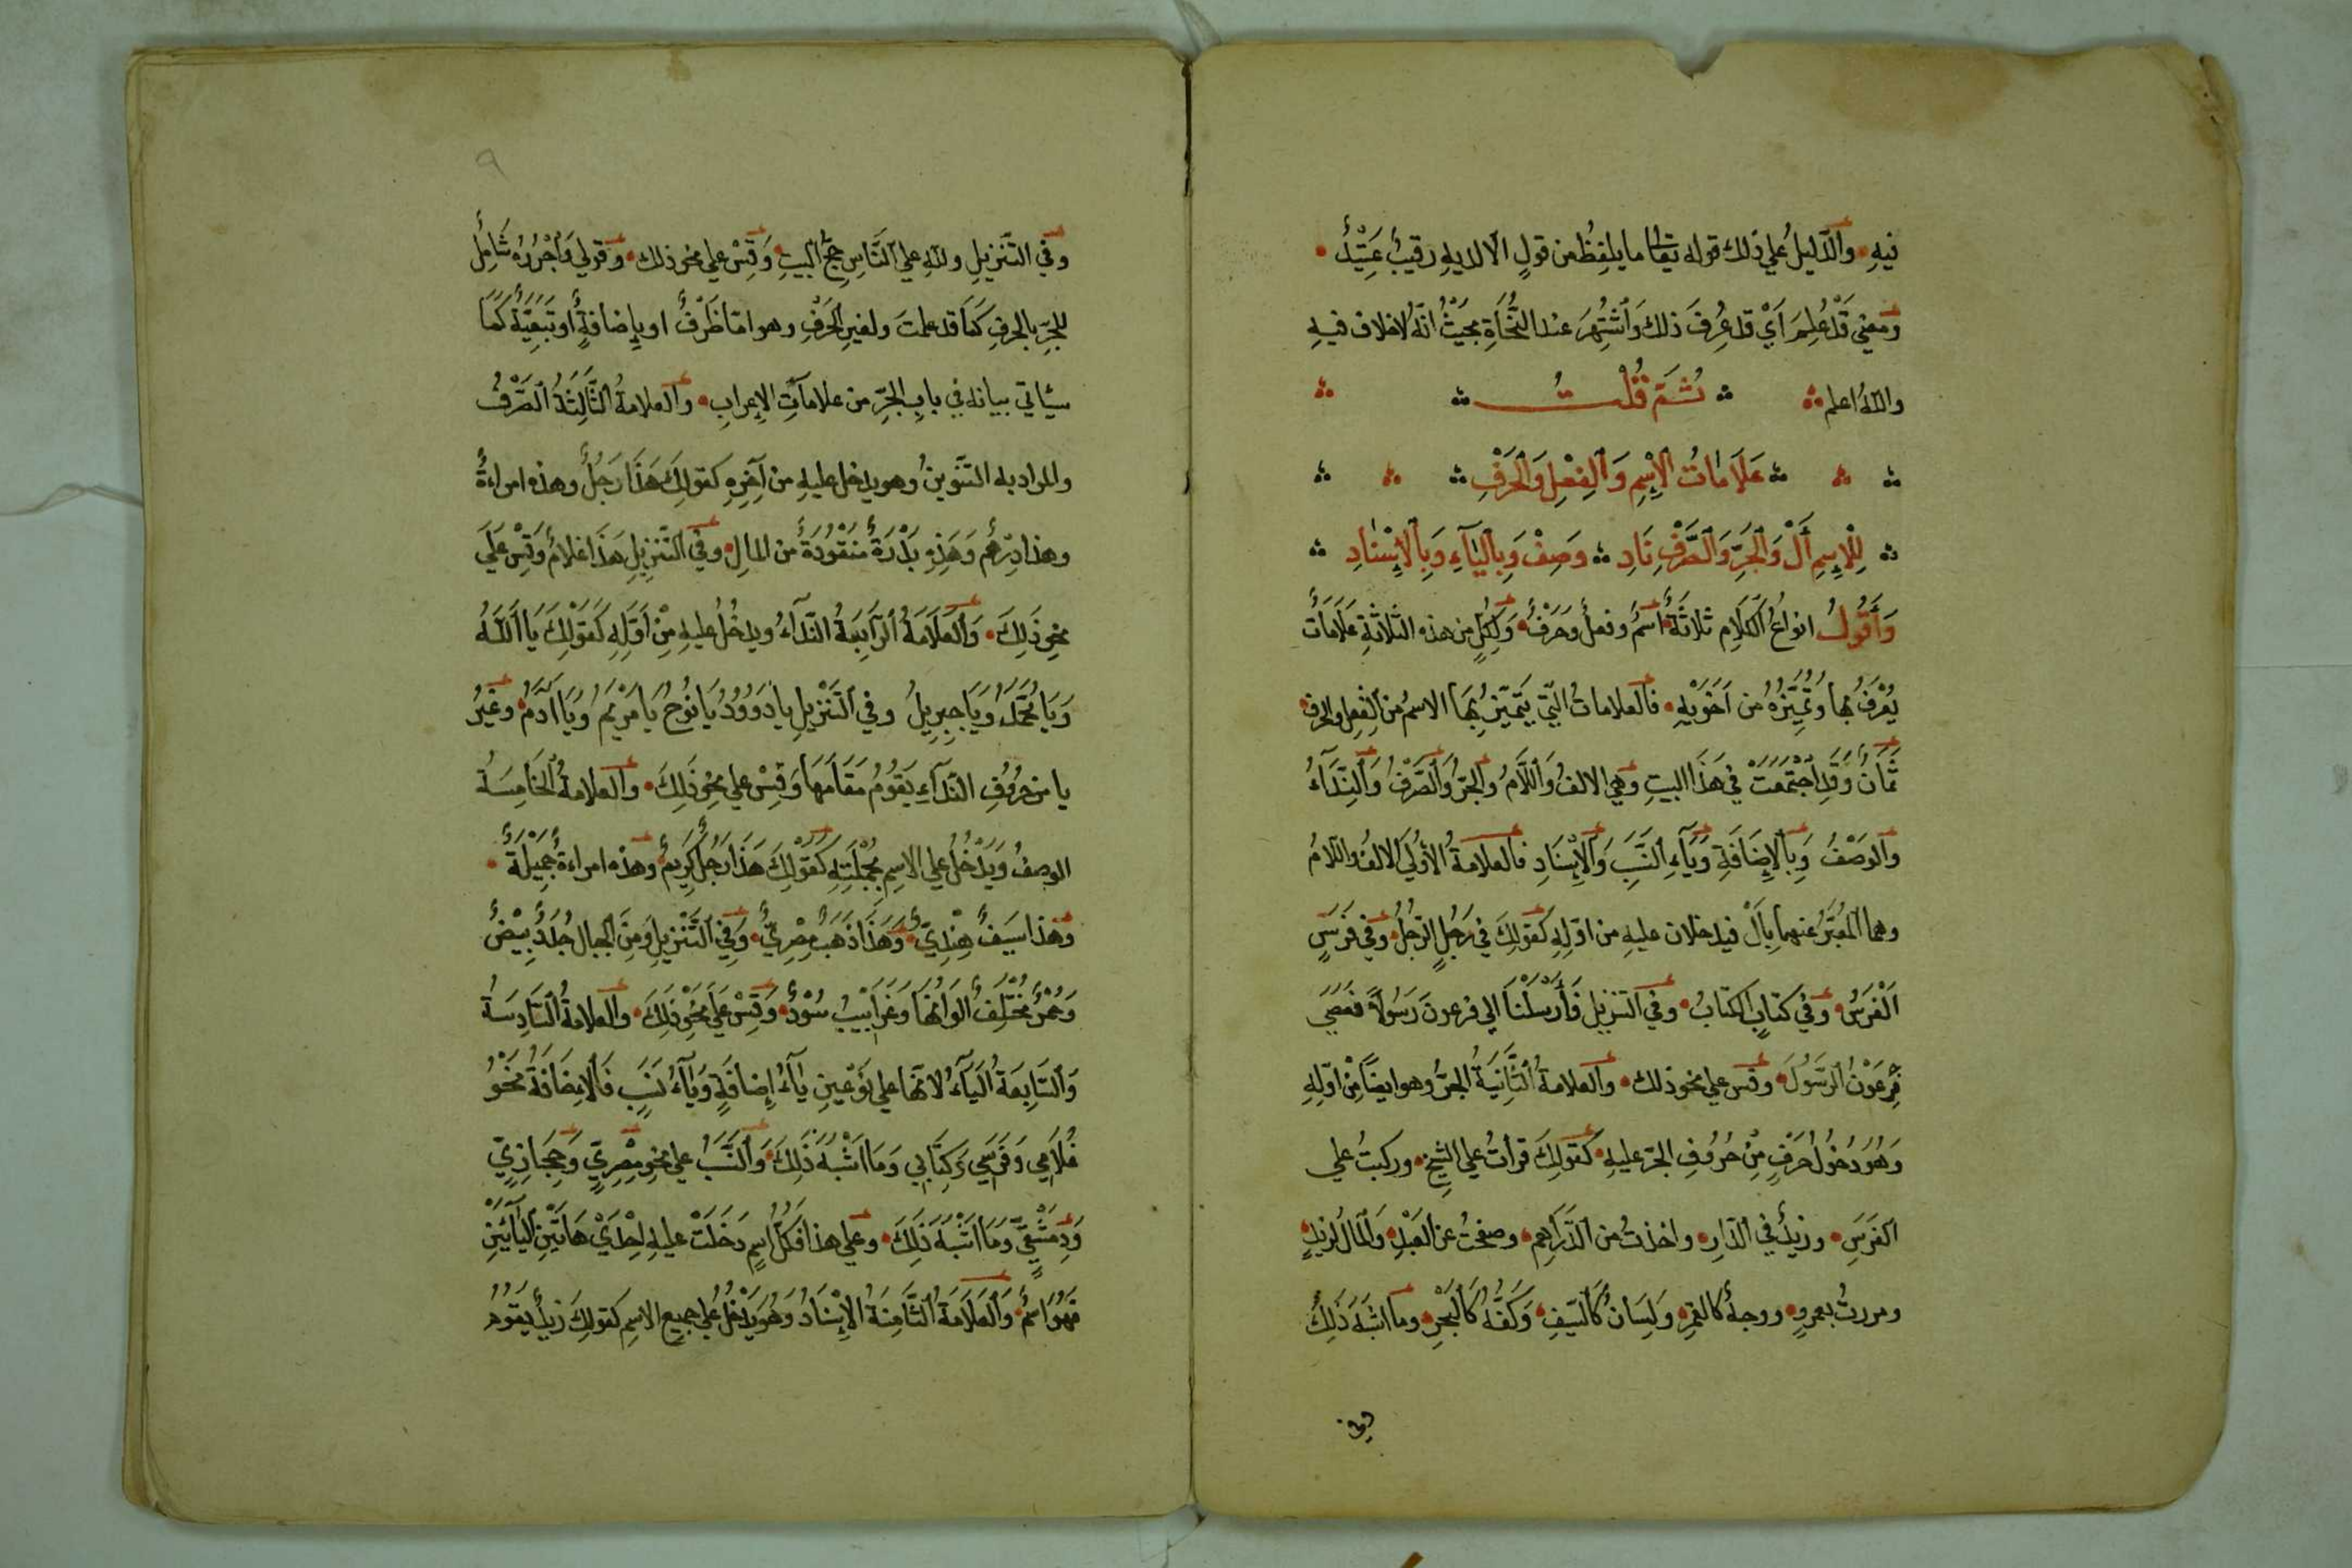 فيهِ والدّليلُ علي ذلك قوله تعالى ما يلفِظُ من قولٍ الّا لديهِ رقيبٌ عَتِيْدٌ
ومعني قَدْ عُلِمَ اَيْ قد عُرِفَ ذلك وَاَشْتُهِرَ عند النُّحَاَةِ بحيْثُ انّهُ لاخلاف فيهِ
واللهُ اعلم ثُمَّ قُلْتُ
عَلَامَاتُ الْإِسْمِ وَالْفِعْلِ وَالْحَرْفِ
لِلْاِسِمِ أَلْ وَالْجَرِّ وَالصَّرْفِ نَادِ وَصِفْ وَبِالْيَآءِ وَبِالْاِسْنَادِ
وَأَقُولُ انواعُ الْكَلَامِ ثلاثَةٌ اسمٌ وفعلٌ وحَرْفٌ وَلِكلٍّ من هذه الثلاثةِ عَلَامَاتٌ
يُعْرَفُ بها وَتُمَيِّزُهُ من اَخَوَيْهِ فالعلاماتُ الّتي يَتَمَيّزُ بِهَا الاسمُ من الفِعلِ والحرف
ثَمَانٌ وَقَدِ اَجْتَمَعَتْ فِي هَذَا البيتِ وهي الالفُ وَاللَّامُ والجرُّ وَالصَّرْفُ وَالنِّدَآءُ
والوَصْفُ وَبِالاِضَافَةِ وَيَآءِ النَّسَبِ وَالْاِسْنَادِ فالعلامةُ الْأُوليُ الالفُ واللامُ
وهما الْمُعَبَّرُ عنهما بِأَلْ فيدخلان عليهِ من اوّلِهِ كقولِكَ في رَجُلٍ الرّجُلُ وفي فَرَسٍ
اَلْفَرَسُ وفي كتابٍ الكتابُ وفي التنزيل فَأَرْسَلْنَا الي فرعونَ رَسُولًا فعصَي
فِرْعَوْنُ الرَّسُوْلَ وقس علي نحو ذلك والعلامةُ الثَّانِيَةُ الجرُّ وهو ايضاً مِنْ اوّلِهِ
وَهُوَ دُخُولُ حَرْفٍ مِنْ حُرُوفِ الجرّ عليهِ كقولِكَ قرأتُ علي الشيخِ وركبتُ علي
الفَرَسِ وزيدٌ في الدّارِ واخذتُ من الدَّرَاهِمِ وصفحتُ عن العَبْدِ وَالْمَالُ لزيدٍ
ومررتُ بعمروٍ ووجهٌ كالقمرِ وَلِسَانٌ كَالسّيفِ وَكَفُّهُ كَالْبَحْرِ وما اشبَهَ ذَلِكَ
وفي
٩
وفي التَّنزيلِ وللهِ علي النَّاسِ حِجُّ البيتِ وَقِسْ علي نحو ذلك وقولي وَاجْرُرْهُ شَامِلٌ
للجرِّ بالحرفِ كمَا قد علمتَ ولغيرِ الحَرْفِ وهو امّا ظَرْفٌ او بإِضافةٍ أو تَبَعِيّةٌ كَمَا
سيأتي بيانه في بابِ الجرِّ من علاماتِ الإِعرابِ والعلامةُ الثَّالِثَةُ الصَّرْفُ
والمراد به التّنوينُ وهو يدخل عليهِ من آخِرِهِ كقولِكَ هَذَا رَجُلٌ وهذه امراءةٌ
وهذا دِرْهَمٌ وَهَذِهِ بَدْرَةٌ منقُودَةٌ من المالِ وفي التّنزيلِ هَذَا غلامٌ وَقِسْ عَلَي
نحوِ ذَلِكَ وَالْعَلَامَةُ الرَّابِعَةُ النّدَآءُ ويدخُلُ عليهِ مِنْ اَوّلِهِ كَقَوْلِكَ يَا اَللَّهُ
وَيَا مُحَمَّدُ وَيَا جِبِرِيلُ وفي التَّنْزِيلِ يا دَوُودُ يَا نُوحُ يَا مَرْيَمُ وَيَا اَدَمُ وَغَيْرُ
يا من حُرُوفِ النّدَآءِ يَقُومُ مَقَامَهَا وَقِسْ علي نحوِ ذَلِكَ والعلامةُ الْخَامِسَةُ
الوصفُ وَيَدْخُلُ علي الاسِمِ بِجُمْلَتِهِ كَقَوْلِكَ هَذَا رَجُلٌ كَرِيمٌ وهذه امراءةٌ جَمِيْلَةٌ
وهذا سَيَفٌ هِنْدِيٌّ وَهَذَا ذَهَبٌ مِصْرِيٌّ وَفِي التَّنْزِيلِ وَمِنَ الْجِبال جُدَدٌ بِيْضٌ
وَحُمْرٌ مُخْتَلِفٌ أَلْوَانُهَا وَغَرَابِيْبُ سُوْدٌ وَقِسْ عَلَيَ نَحْوِ ذَلِكَ والعلامةُ السَّادِسَةُ
وَالسَّابِعَةُ الْيَآءُ لانّها علي نَوْعَينِ يآءُ إِضافَةٍ وَيَآءُ نَسَبٍ فَالْاِضَافَةُ نَحْوُ
غُلَامِي وَفَرَسِي وَكِتَابي وَمَا اشْبَهَ ذَلِكَ وَالنَّسَبُ علي نحو مِصْرِيٍّ وَحِجَازِيٍّ
وَدِمَشْقِيٍّ وَمَا اشْبَهَ ذَلِكَ وعلي هذا فكلُّ اسِمٍ دَخَلَتْ عليهِ اِحْدَيْ هَاتَيْنِ اليَآئَيْنِ
فهُوَ اسمٌ وَالْعَلَامَةُ الثَّامِنَةُ الاِسْنَادُ وَهُوَ يَدْخُلُ علي جميع الاسمِ كقولِكَ زيدٌ يقومُ